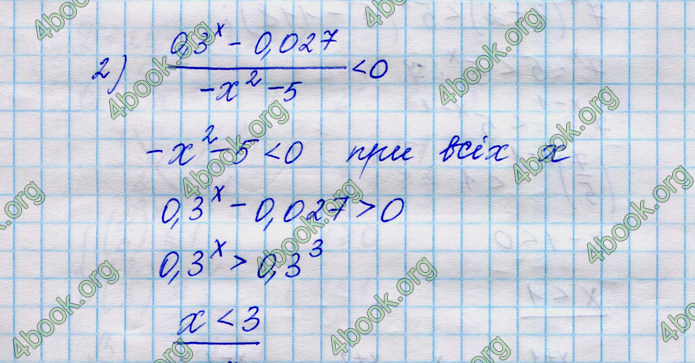 2) (0,3^x - 0,027)/(-x^2 - 5) < 0
-x^2 - 5 < 0 при всіх x
0,3^x - 0,027 > 0
0,3^x > 0,3^3
x < 3
4book.org
4book.org
4book.org
4book.org
4book.org
4book.org
4book.org
4book.org
4book.org
4book.org
4book.org